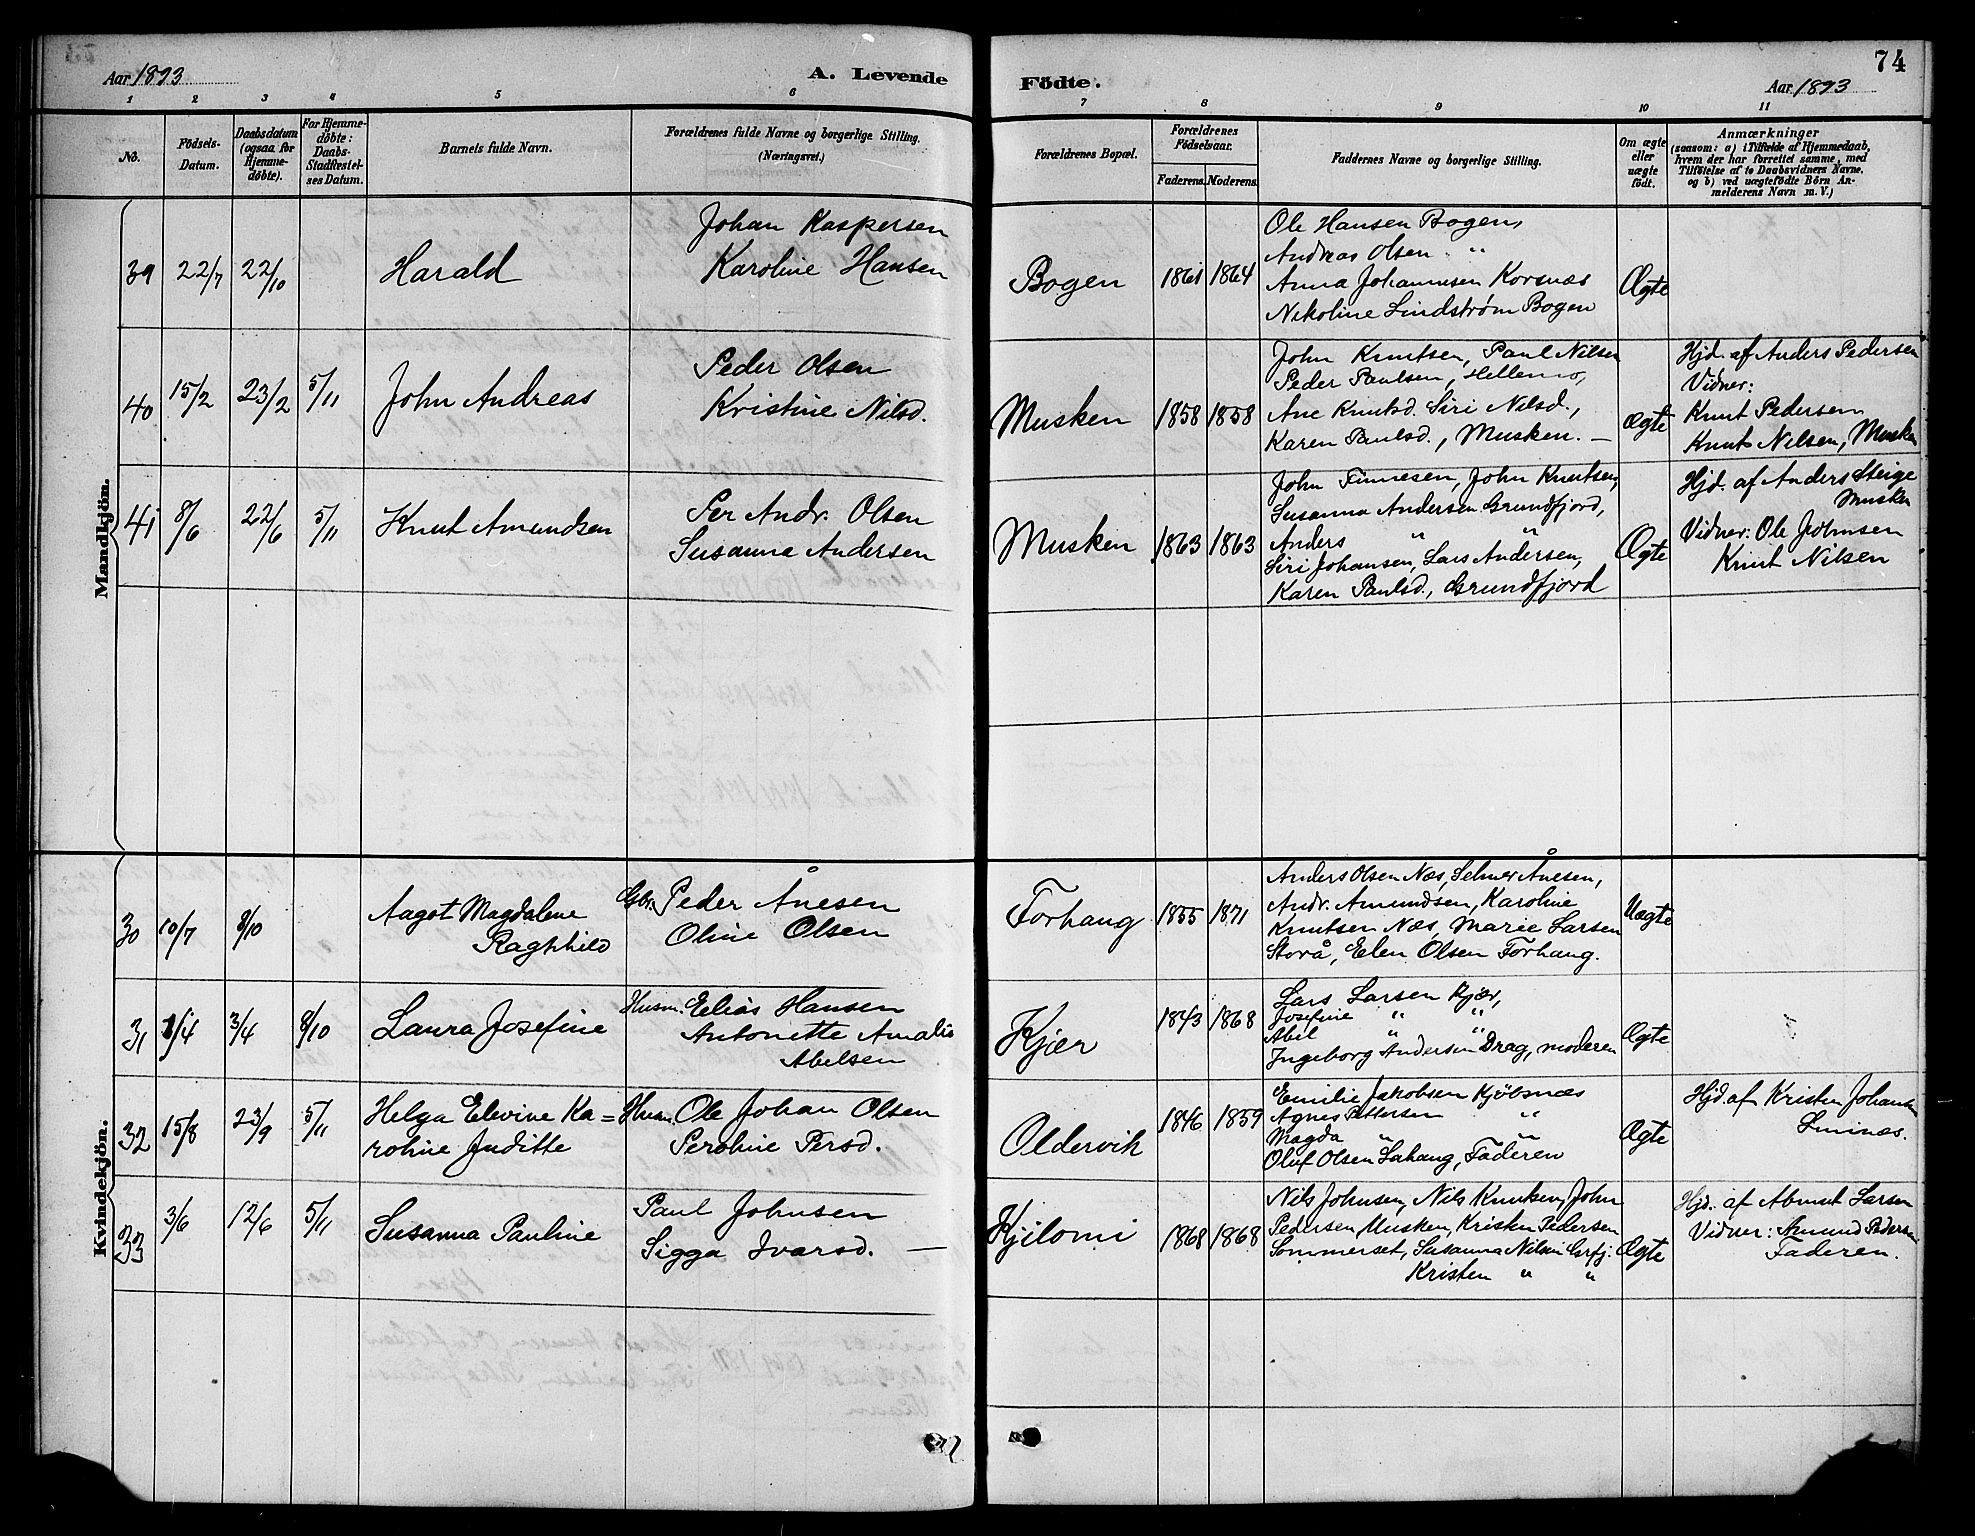 Aar 1893
A. Levende
Födte.
Aar 1893
74
1 2 3 4 5 6 7 8 9 10 11
No.
Födsels-
Datum.
Daabsdatum
(ogsaa for
Hjemme-
döbte).
For Hjemme-
döbte:
Daabs-
Stadfæstel-
ses Datum.
Barnets fulde Navn.
Forældrenes fulde Navne og borgerlige Stilling.
(Næringsvei.)
Forældrenes Bopæl.
Forældrenes
Födselsaar.
Faderens. Moderens.
Faddernes Navne og borgerlige Stilling.
Om ægte
eller
uægte
födt.
Anmærkninger
(saasom: a) i Tilfælde af Hjemmedaab,
hvem der har forrettet samme, med
Tilföielse af to Daabsvidners Navne,
og b) ved uægtefödte Börn An-
melderens Navn m. V.)
Mandkjön.
39 22/7 22/10 Harald
Johan Kaspersen
Karoline Hansen
Bogen 1861 1864
Ole Hansen Bogen,
Andreas Olsen "
Anna Johannesen Korsnæs
Nikoline Lindstrøm Bogen
Ægte
40 15/2 23/2 5/11 John Andreas
Peder Olsen
Kristine Nilsd.
Musken 1858 1858
John Knutsen, Paul Nilsen
Peder Paulsen, Hellemo,
Ane Knutsd. Siri Nilsd.,
Karen Paulsd., Musken. —
Ægte
Hjd. af Anders Pedersen
Vidner:
Knut Pedersen
Knut Nilsen, Musken
41 8/6 22/6 5/11 Knut Amundsen
Per Andr. Olsen
Susanna Andersen
Musken 1863 1863
John Finnesen, John Knutsen,
Susanna Andersen Grundfjord,
Anders " "
Siri Johansen, Lars Andersen,
Karen Paulsd., Grundfjord
Ægte
Hjd. af Anders Steige
Musken
Vidner: Ole Johnsen
Knut Nilsen
Kvindekjön.
30 10/7 8/10 Aagot Magdalene
Ragnhild
Gbr. Peder Ånesen
Oline Olsen
Forhang 1855 1871
Anders Olsen Næs, Selmer Ånesen,
Andr. Amundsen, Karoline
Knutsen Næs, Marie Larsen
Storå, Elen Olsen Forhang.
Uægte
31 1/4 3/4 8/10 Laura Josefine
Husm. Eelias Hansen
Antonette Amalie
Abelsen
Kjær 1843 1868
Lars Larsen Kjær,
Josefine " "
Abel " "
Ingeborg Andersen Drag, moderen
Ægte
32 15/8 23/9 5/11 Helga Elevine Ka=
roline Juditte
Husm. Ole Johan Olsen
Peroline Persd.
Oldervik 1846 1859
Emilie Jakobsen Kjöbsnæs
Agnes Pettersen "
Magda " "
Oluf Olsen Lahaug, Faderen
Ægte
Hjd. af Kristen Johans
33 3/6 12/6 5/11 Susanna Pauline
Paul Johnsen
Sigga Ivarsd. —
Kjilomi 1868 1868
Nils Johnsen, Nils Knutsen, John
Pedersen Musken, Kristen Pedersen
Sommerset, Susanna Nilsen Grfj.
Kristen " "
Ægte
Hjd. af Amund Larsen
Vidner: Amund Pedersen
Faderen.